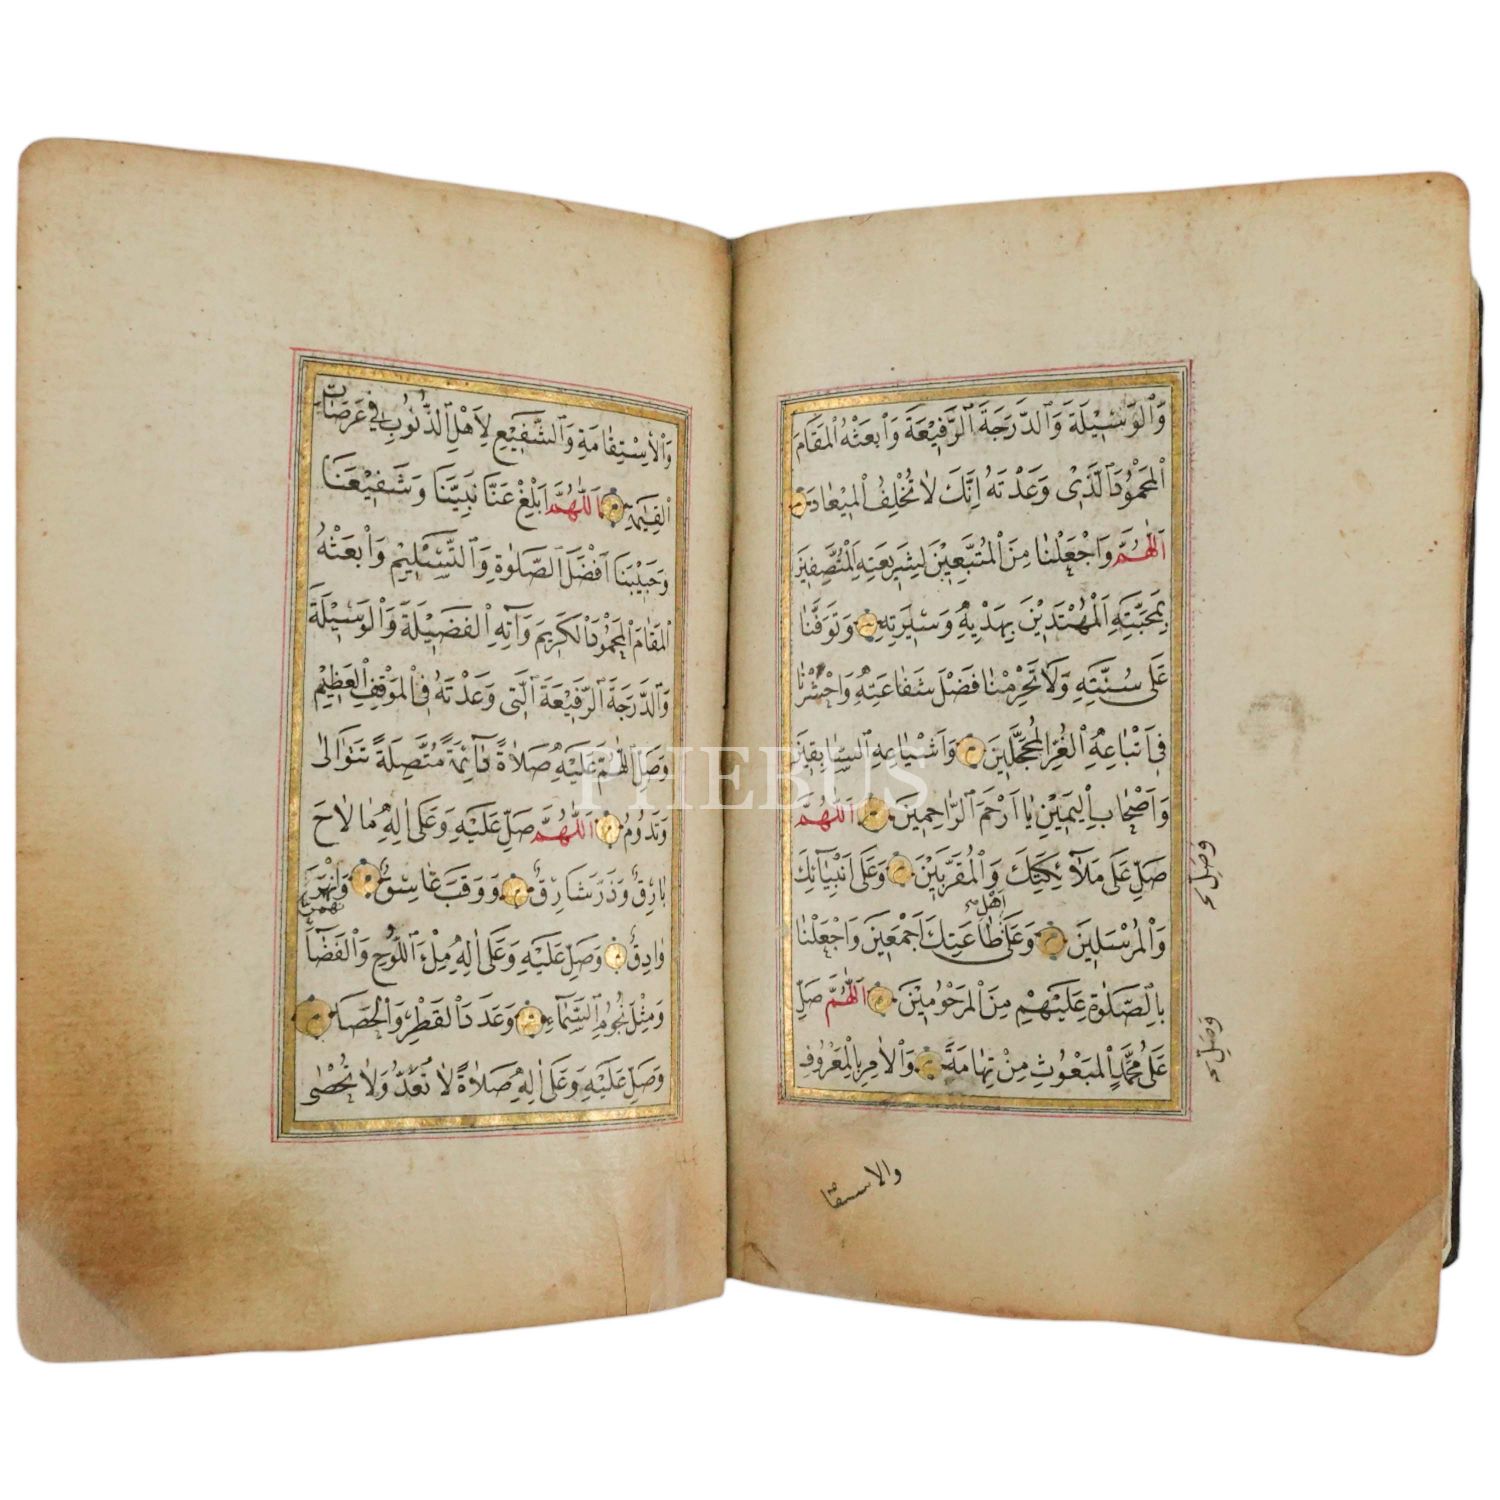 وَالْوَسِيلَةَ وَالدَّرَجَةَ الرَّفِيعَةَ وَابْعَثْهُ الْمَقَامَ
الْمَحْمُودَ الَّذِي وَعَدْتَهُ اِنَّكَ لَا تُخْلِفُ الْمِيعَادَ
اَللّٰهُمَّ وَاجْعَلْنَا مِنَ الْمُتَّبِعِينَ لِشَرِيعَتِهِ الْمُتَّصِفِينَ
بِمَحَبَّتِهِ الْمُهْتَدِينَ بِهَدْيِهِ وَسِيرَتِهِ وَتَوَفَّنَا
عَلَى سُنَّتِهِ وَلَا تَحْرِمْنَا فَضْلَ شَفَاعَتِهِ وَاحْشُرْنَا
فِي اَتْبَاعِهِ الْغُرِّ الْمُحَجَّلِينَ وَاَشْيَاعِهِ السَّابِقِينَ
وَاَصْحَابِ الْيَمِينِ يَا اَرْحَمَ الرَّاحِمِينَ اَللّٰهُمَّ
صَلِّ عَلَى مَلَآئِكَتِكَ وَالْمُقَرَّبِينَ وَعَلَى اَنْبِيَائِكَ
وصل
وَالْمُرْسَلِينَ وَعَلَى اَهْلِ طَاعَتِكَ اَجْمَعِينَ وَاجْعَلْنَا
بِالصَّلٰوةِ عَلَيْهِمْ مِنَ الْمَرْحُومِينَ اَللّٰهُمَّ صَلِّ
وصل
عَلَى مُحَمَّدٍ الْمَبْعُوثِ مِنْ تِهَامَةَ وَالْاٰمِرِ بِالْمَعْرُوفِ
والاستقا
وَالْاِسْتِقَامَةِ وَالشَّفِيعِ لِاَهْلِ الذُّنُوبِ فِي عَرَصَاتِ
الْقِيٰمَةِ اَللّٰهُمَّ اَبْلِغْ عَنَّا نَبِيَّنَا وَشَفِيعَنَا
وَحَبِيبَنَا اَفْضَلَ الصَّلٰوةِ وَالتَّسْلِيمِ وَابْعَثْهُ
الْمَقَامَ الْمَحْمُودَ الْكَرِيمَ وَآتِهِ الْفَضِيلَةَ وَالْوَسِيلَةَ
وَالدَّرَجَةَ الرَّفِيعَةَ الَّتِي وَعَدْتَهُ فِي الْمَوْقِفِ الْعَظِيمِ
وَصَلِّ اللّٰهُمَّ عَلَيْهِ صَلَاةً دَآئِمَةً مُتَّصِلَةً تَتَوَالَى
وَتَدُومُ اَللّٰهُمَّ صَلِّ عَلَيْهِ وَعَلَى اٰلِهِ مَا لَاحَ
بَارِقٌ وَذَرَ شَارِقٌ وَوَقَبَ غَاسِقٌ وَانْهَمَرَ
وَادِقٌ وَصَلِّ عَلَيْهِ وَعَلَى اٰلِهِ مِلْءَ اللَّوْحِ وَالْفَضَآ
وَمِثْلَ نُجُومِ السَّمَآءِ وَعَدَدَ الْقَطْرِ وَالْحَصَا
وَصَلِّ عَلَيْهِ وَعَلَى اٰلِهِ صَلَاةً لَا تُعَدُّ وَلَا تُحْصٰى
PHEBUS